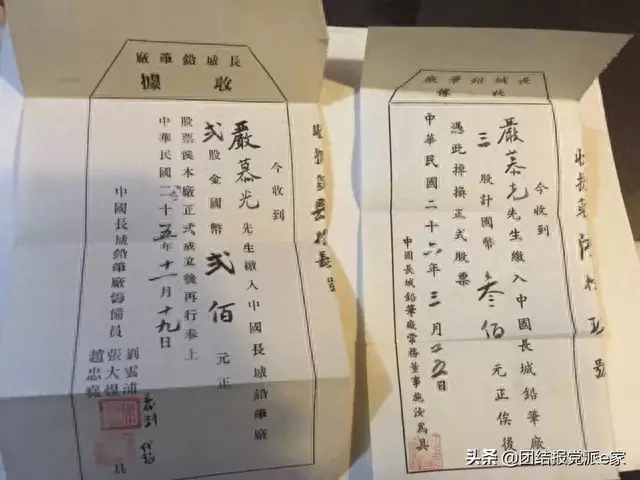 長城鉛筆廠
收據
今收到
嚴慕光先生繳入中國長城鉛筆廠
弍股金國幣弍佰元正
股票俟本廠正式成立後再行奉上
中華民國二十五年十一月十九日
中國長城鉛筆廠籌備員
劉雲浦
張大煜
趙忠堯
具
長城鉛筆廠
收據
今收到
嚴慕光先生繳入中國長城鉛筆廠
三股計國幣叁佰元正俟後
憑此掉換正式股票
中華民國二十六年三月廿五日
中國長城鉛筆廠常務董事施汝為具
头条 @团结报党派e家